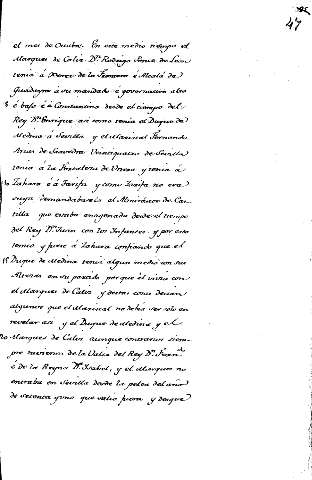 47
el mes de Octubre. En este medio tiempo el
Marques de Caliz Dn. Rodrigo Ponce de Leon
tenia á Xerez de la Frontera é Alcalá de
Guadayra á su mandado é governacion alto
5 é bajo é á Constantina desde el tiempo del
Rey Dn. Enrique asi como tenia el Duque de
Medina á Sevilla y el Mariscal Fernando
Arias de Saavedra Veintiquatro de Sevilla
tenia á la Fortaleza de Utrera y tenia á
10 Zahara é á Tarifa y como Tarifa no era
suya demandabasela el Almirante de Cas-
tilla que estaba enagenada desde el tiempo
del Rey Dn. Juan con los Infantes, y por esto
temio y furió á Zahara confiando que el
15 Duque de Medina tenia algun medio con sus
Altezas en su porque el vivia con
el Marques de Caliz y destas cosas decian
algunos que el Mariscal no debió ser solo en
revelar asi y el Duque de Medina y el
20 Marques de Caliz aunque contrarios siem-
pre tuvieron de la Valia del Rey Dn. Fernando
é de la Reyna Da. Isabel, y el Marques no
entraba en Sevilla desde la pelea del año
de setenta y uno que salió fuera y despue